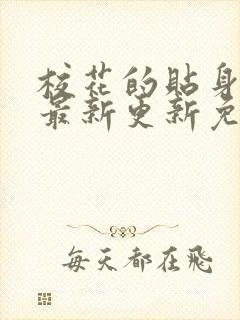 校花的贴身
最新更新免
每天都在飛